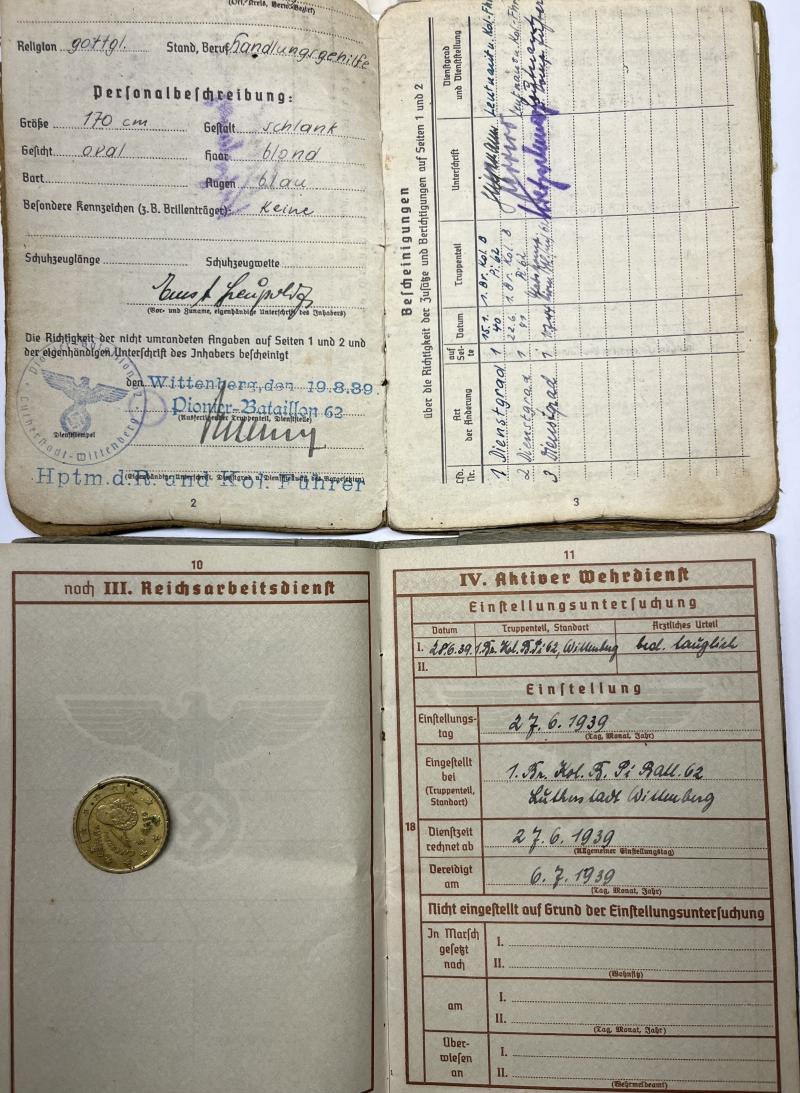 (Ort, Kreis, Verw.-Bezirk)
Religion gottgl. Stand, Beruf Handlungsgehilfe
Personalbeschreibung:
Größe 170 cm Gestalt schlank
Gesicht oval Haar blond
Bart Augen blau
Besondere Kennzeichen (z.B. Brillenträger): Keine
Schuhzeuglänge Schuhzeugweite
Ernst
(Vor- und Zuname, eigenhändige Unterschrift des Inhabers)
Die Richtigkeit der nicht umrandeten Angaben auf Seiten 1 und 2 und
der eigenhändigen Unterschrift des Inhabers bescheinigt
den Wittenberg, den 19.8.39
Pionier-Bataillon 62
(Ausfertigender Truppenteil, Dienststelle)
Dienststempel
Lutherstadt-Wittenberg
Hptm.d.R. und Kol. Führer
(Eigenhändige Unterschrift, Dienstgrad u. Dienststellung des Vorgesetzten)
2
Bescheinigungen
über die Richtigkeit der Zusätze und Berichtigungen auf Seiten 1 und 2
Lfd. Nr. Art der Änderung auf Seite Datum Truppenteil Unterschrift Dienstgrad und Dienststellung
1 Dienstgrad 1 15.1.40 1. Br. Kol. B Pi 62 Leutnant u. Kol.-Fhr
2 Dienstgrad 1 22.6.41 1. Br. Kol. B Pi 62 Leutnant u. Kol.Fhr
3 Dienstgrad 1
3
10
noch III. Reichsarbeitsdienst
11
IV. Aktiver Wehrdienst
Einstellungsuntersuchung
Datum Truppenteil, Standort Ärztliches Urteil
I. 28.6.39 1. Br. Kol. B. Pi 62, Wittenberg bed. tauglich
II.
Einstellung
Einstellungs-
tag 27.6.1939
(Tag, Monat, Jahr)
Eingestellt
bei 1. Br. Kol. B. Pi Batl. 62
(Truppenteil,
Standort) Lutherstadt Wittenberg
18
Dienstzeit
rechnet ab 27.6.1939
(Allgemeiner Einstellungstag)
Vereidigt
am 6.7.1939
(Tag, Monat, Jahr)
Nicht eingestellt auf Grund der Einstellungsuntersuchung
In Marsch
gesetzt
nach
I.
II.
(Wohnsitz)
am
I.
II.
(Tag, Monat, Jahr)
Über-
wiesen
an
I.
II.
(Wehrmeldeamt)